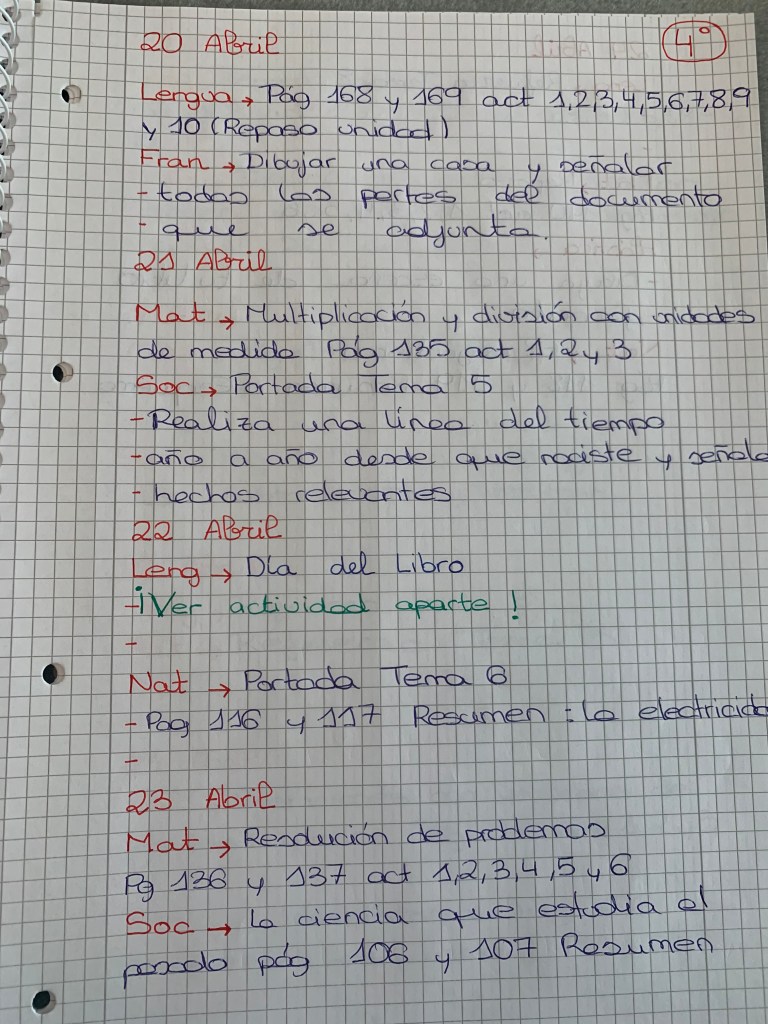 20 Abril
4º
Lengua → Pág 168 y 169 act 1,2,3,4,5,6,7,8,9
y 10 (Repaso unidad)
Fran → Dibujar una casa y señalar
- todas las partes del documento
- que se adjunta.
21 Abril
Mat → Multiplicación y división con unidades
de medida Pág 135 act 1,2 y 3
Soc → Portada Tema 5
- Realiza una línea del tiempo
- año a año desde que naciste y señala
- hechos relevantes
22 Abril
Leng → Día del Libro
- ¡Ver actividad aparte!
-
Nat → Portada Tema 6
- Pag 116 y 117 Resumen : la electricida
-
23 Abril
Mat → Resolución de problemas
Pg 136 y 137 act 1,2,3,4,5 y 6
Soc → la ciencia que estudia el
pasado pág 106 y 107 Resumen